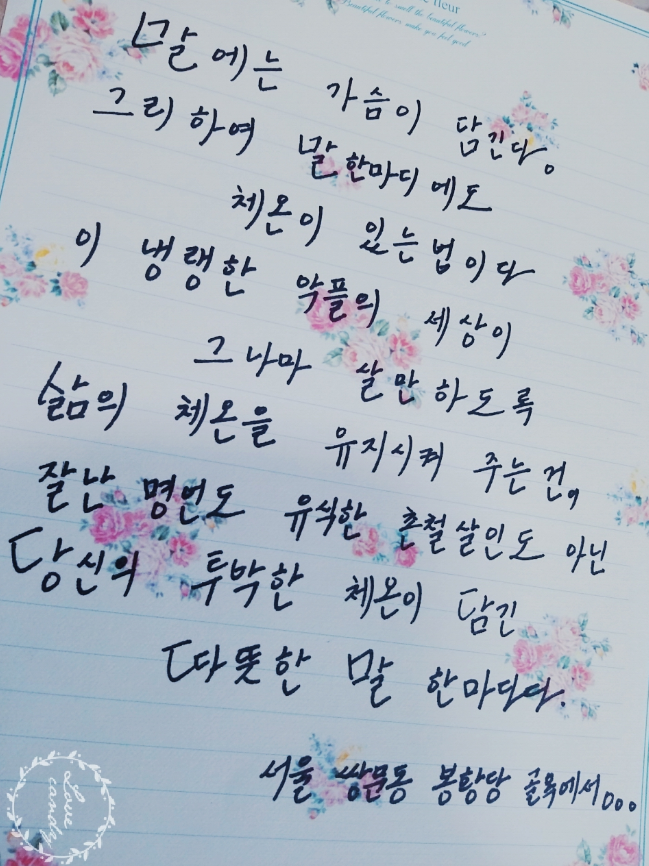 fleur
to smell the beautiful flowers.
Beautiful flowers make you feel good
말에는 가슴이 담긴다。
그리하여 말한마디에도
체온이 있는법이다
이 냉랭한 악플의 세상이
그나마 살만하도록
삶의 체온을 유지시켜 주는건,
잘난 명언도 유식한 촌철살인도 아닌
당신의 투박한 체온이 담긴
따뜻한 말 한마디다.
서울 쌍문동 봉황당 골목에서。。。
Love
candy